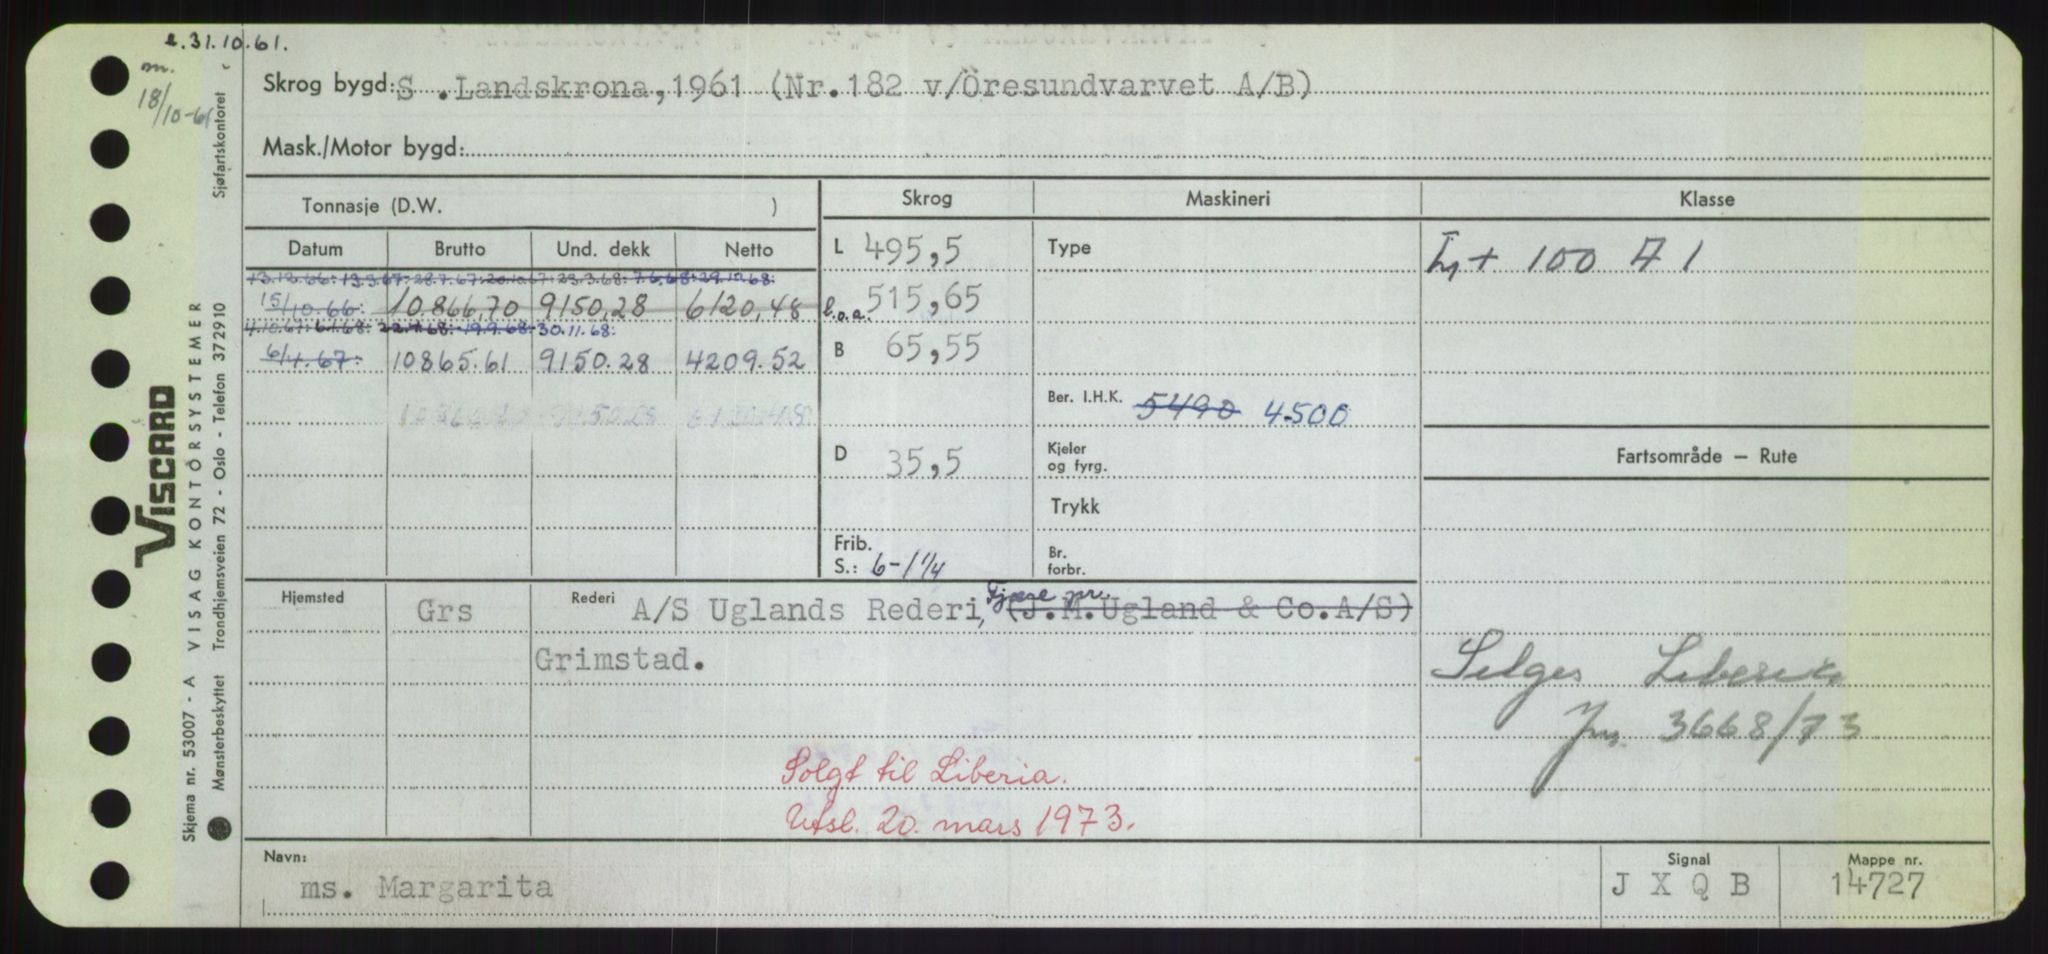 e. 31.10.61.
m.
18/10-61
Skrog bygd: S .Landskrona,1961 (Nr.182 v/Öresundvarvet A/B)
Mask./Motor bygd:
Tonnasje (D.W. )
Datum Brutto Und. dekk Netto
13.12.66: 13.3.67: 28.7.67: 20.10.67: 23.3.68: 7.6.68: 29.10.68:
15/10.66: 10.866,70 9150,28 6120,48
4.10.67: 6.1.68: 22.7.68: 19.9.68: 30.11.68:
6/4.67: 10865.61 9150.28 4209.52
Skrog
L 495,5
l.o.a. 515,65
B 65,55
D 35,5
Frib.
S.: 6-1 1/4
Maskineri
Type
Ber. I.H.K. 5490 4500
Kjeler
og fyrg.
Trykk
Br.
forbr.
Klasse
+ 100 A 1
Fartsområde — Rute
Selges Liberia
Jnr. 3668/73
Hjemsted Grs
Rederi A/S Uglands Rederi, Fjære pr. (J.M.Ugland & Co.A/S)
Grimstad.
Solgt til Liberia.
Utsl. 20. mars 1973.
Navn:
ms. Margarita
Signal
J X Q B
Mappe nr.
14727
VISCARD
VISAG KONTORSYSTEMER
Skjema nr. 53007 - A
Mønsterbeskyttet Trondhjemsveien 72 - Oslo - Telefon 372910 Sjøfartskontoret